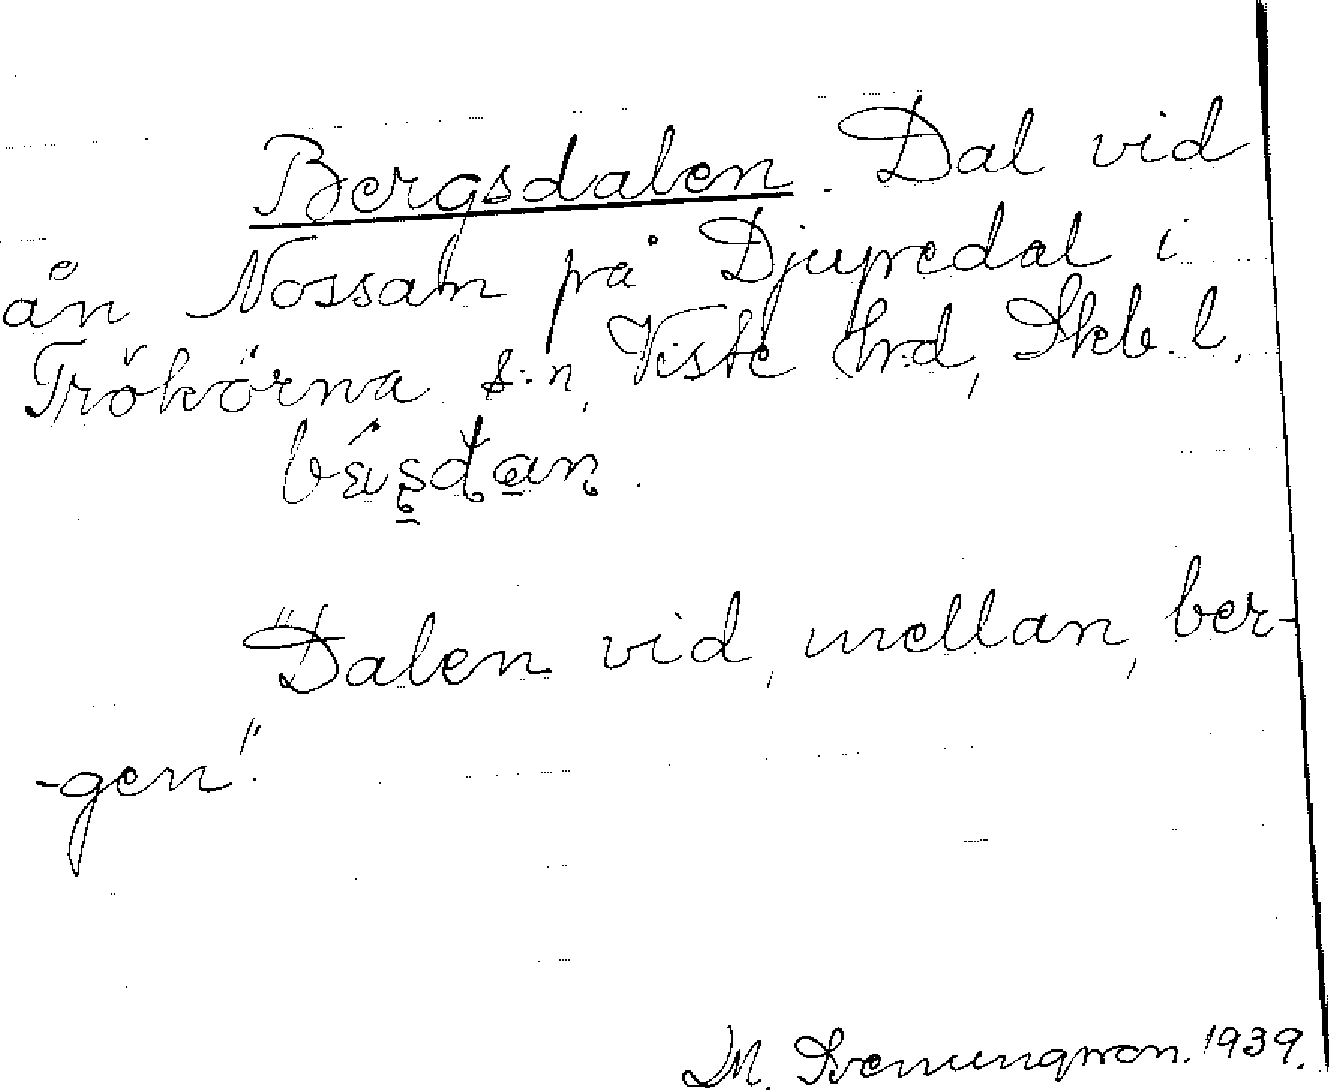 Bergsdalen. Dal vid
ån Nossan på Djupedal i
Trökörna s:n, Viste hrd, Skb. l.
"Dalen vid, mellan, ber-
-gen".
M. Svenungsson. 1939.